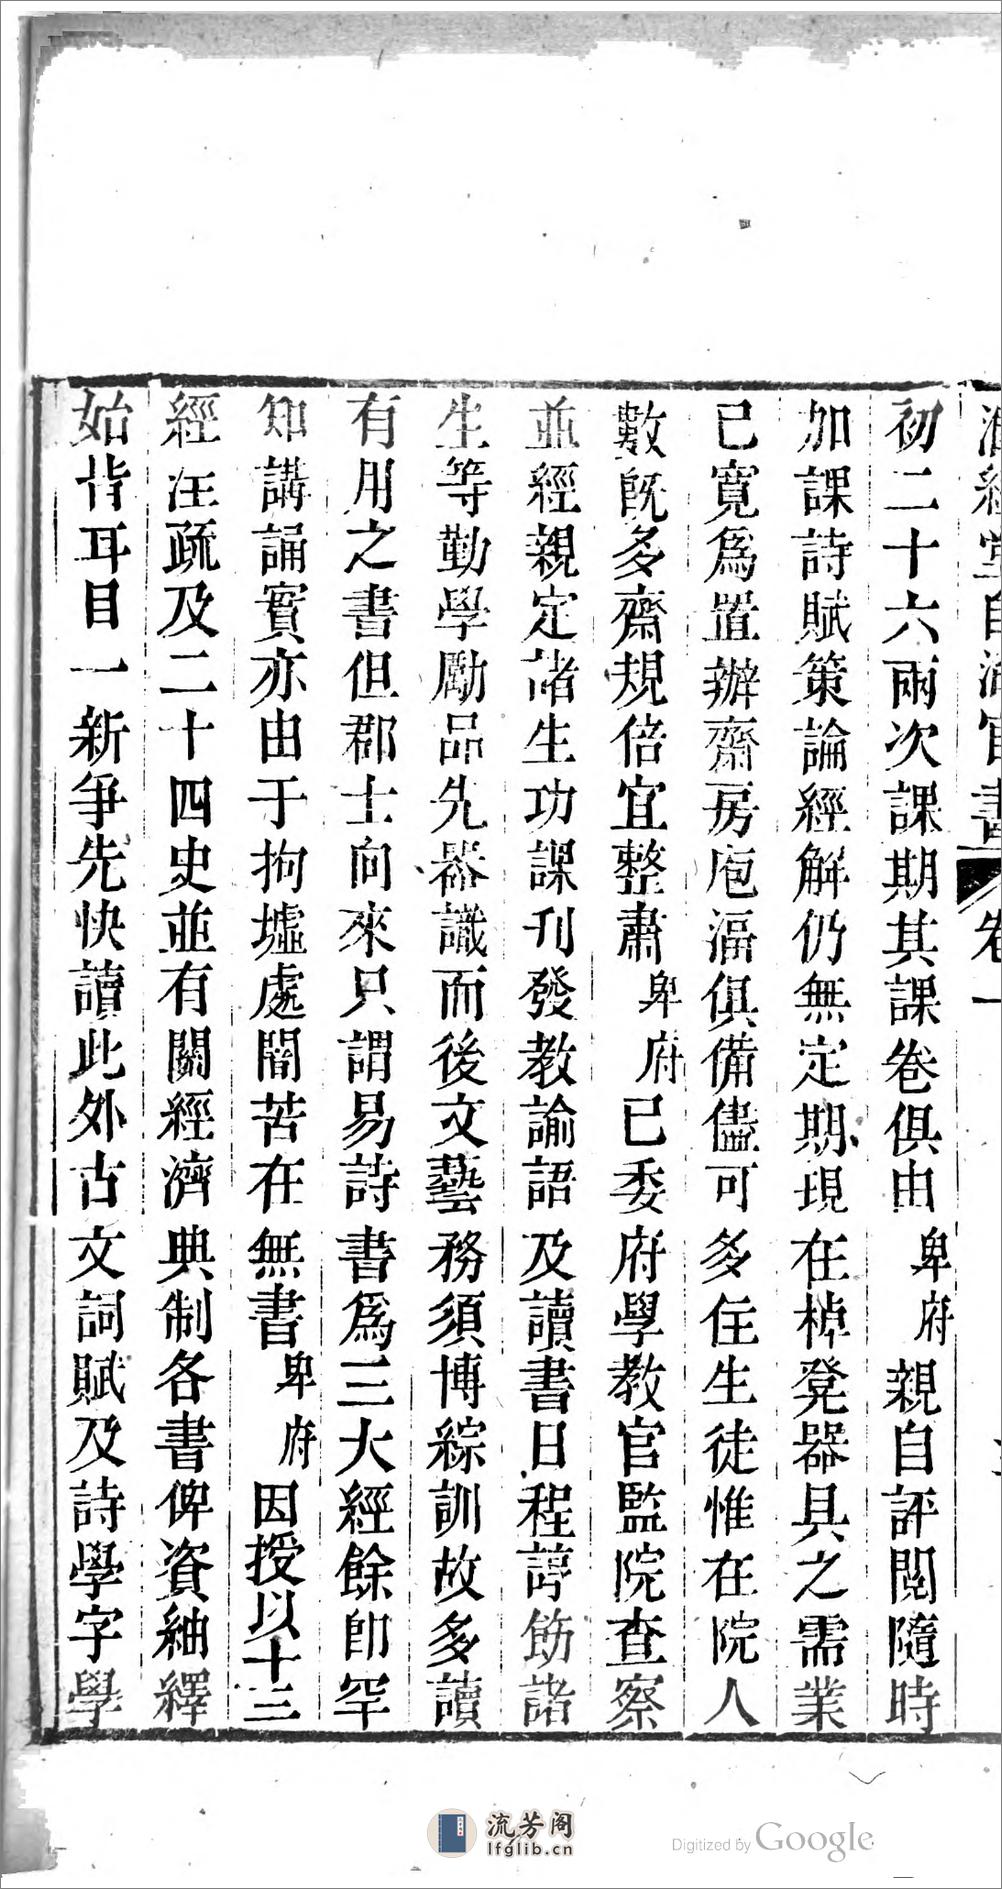 初二十六兩次課期其課卷俱由卑府親自評閱隨時
加課詩賦策論經解仍無定期現在棹凳器具之需業
已寬爲置辦齋房庖湢俱備儘可多住生徒惟在院人
數旣多齋規倍宜整肅卑府已委府學教官監院查察
並經親定諸生功課刊發教諭語及讀書日程諄飭諸
生等勤學勵品先器識而後文藝務須博綜訓故多讀
有用之書但郡士向來只謂易詩書爲三大經餘卽罕
知講誦實亦由于拘墟處闇苦在無書卑府因授以十三
經注疏及二十四史並有關經濟典制各書俾資紬繹
始背耳目一新爭先快讀此外古文詞賦及詩學字學
流芳阁
lfglib.cn
Digitized by Google